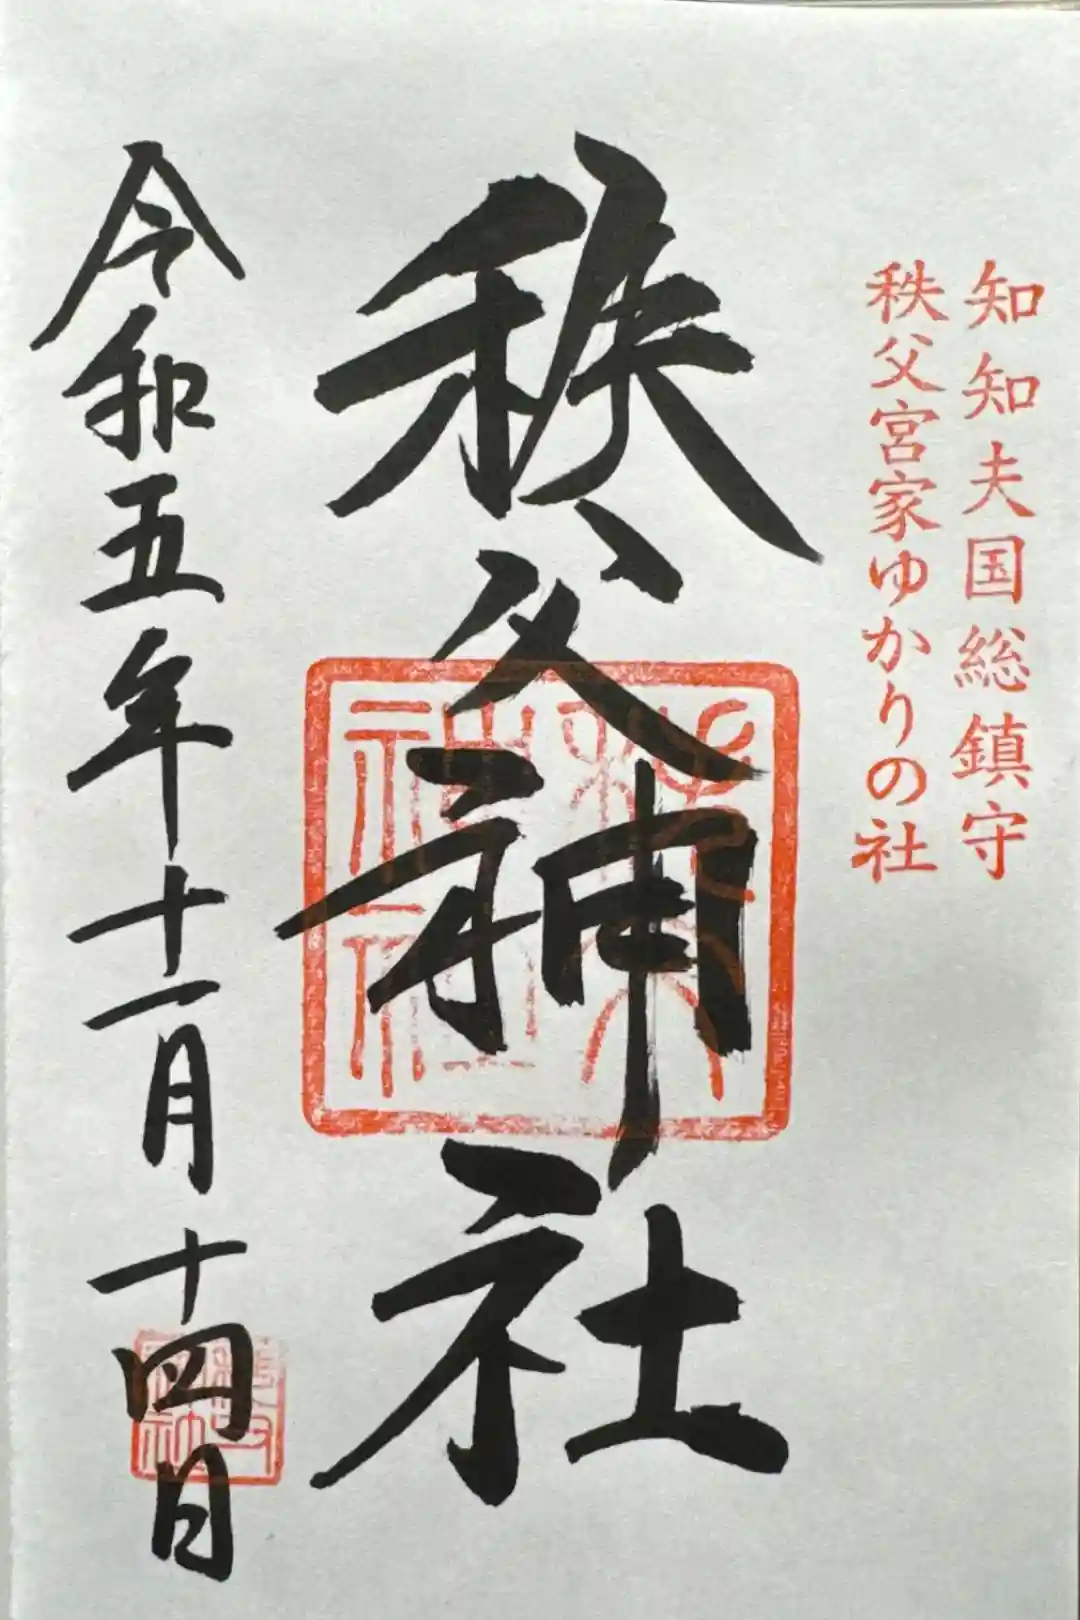 知知夫国総鎮守
秩父宮家ゆかりの社
秩父神社
令和五年十一月十四日
秩父
神社